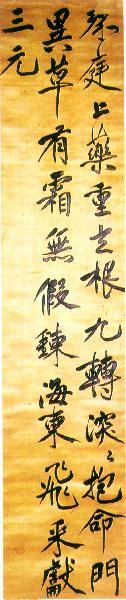 珠庭上藥重玄根九轉深〻抱命門
異草有霜無假鍊海東飛来獻
三元